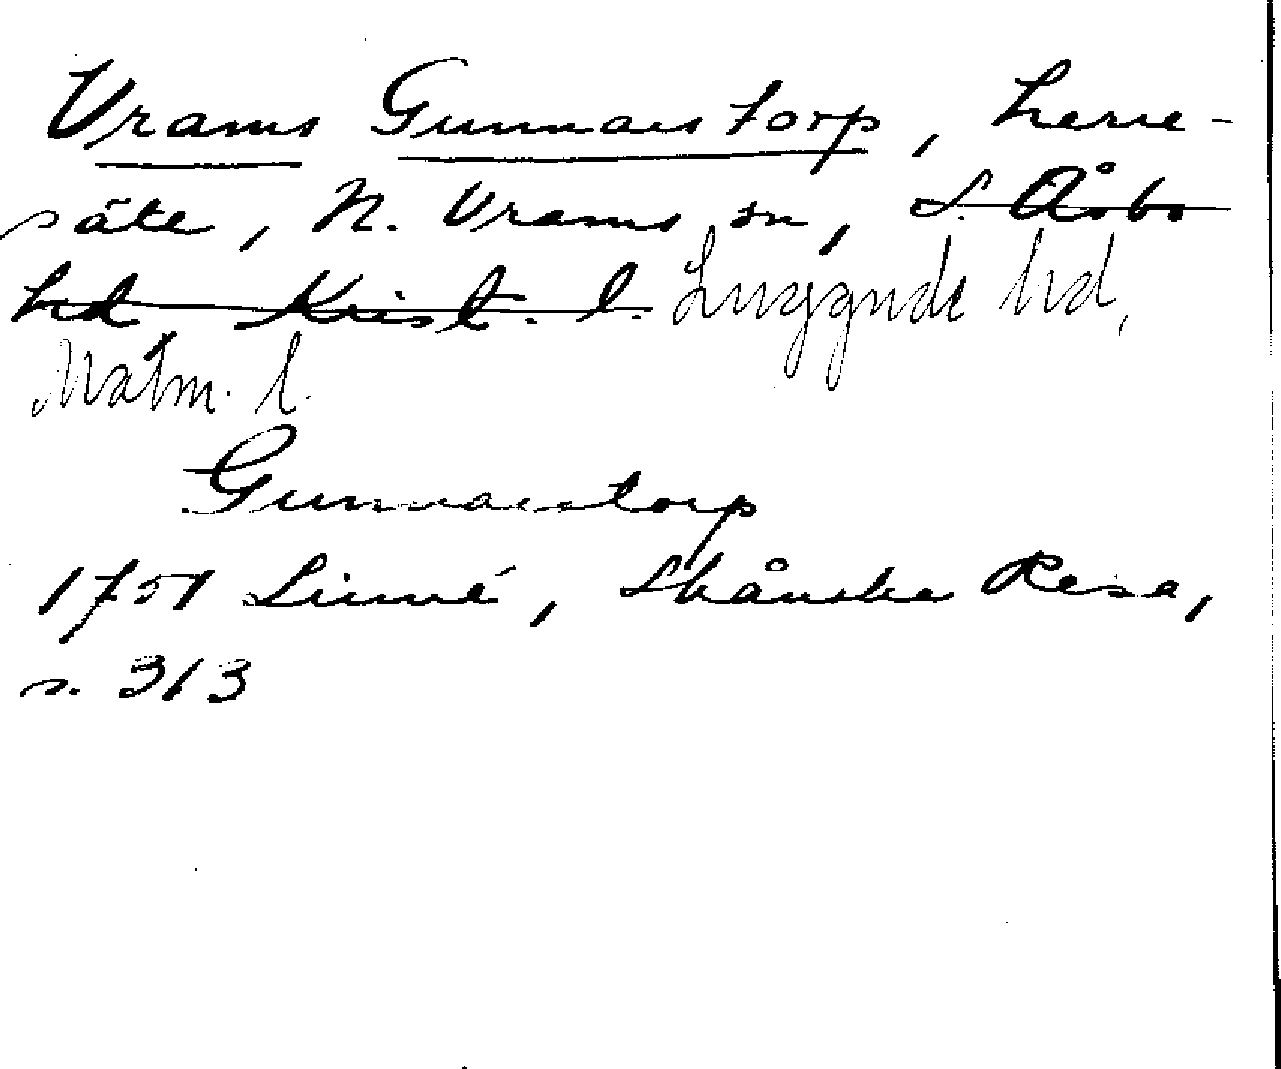 Vrams Gunnarstorp, herre-
säte, N. Vrams sn, S. Åsbo
hd, Krist. l. Luggude hd,
Malm. l.
Gunnarstorp
1751 Linné, Skånska Resa,
s. 313